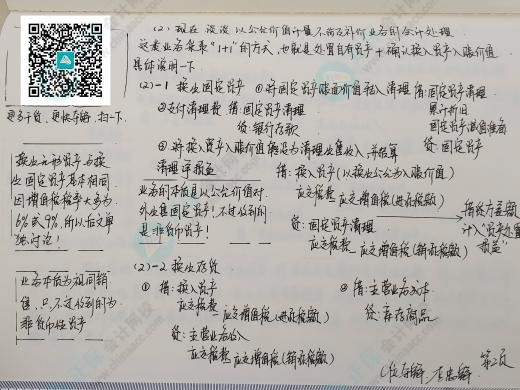 (2) 现在谈谈以公允价值计量不涉及补价业务的会计处理
这类业务采取"1+1"的方式，也就是处置自有资产+确认换入资产入账价值
具体说明一下
(2)-1 换出固定资产 ①将固定资产账面价值转入清理 借:固定资产清理
累计折旧
固定资产减值准备
贷:固定资产
②支付清理费 借:固定资产清理
贷:银行存款
③将换入资产入账价值确认为清理收入,并结算
清理净损益
借:换入资产(以换出公允为入账价值)
应交税费 应交增值税(进项税额)
贷:固定资产清理
应交税费 应交增值税(销项税额)
借贷方差额
计入"资产处置
损益"
更多干货，更快存储，扫一下
换出无形资产与换
出固定资产基本相同
因增值税税率大多为
6%或9%,所以后文单
独讨论!
业务本质是以公允价值对
外出售固定资产!不过收到的
是非货币资产!
(2)-2 换出存货
① 借:换入资产
应交税费 应交增值税(进项税额)
贷:主营业务收入
应交税费 应交增值税(销项税额)
② 借:主营业务成本
贷:库存商品
业务本质为视同销
售,只不过收到的为
非货币性资产
第2页